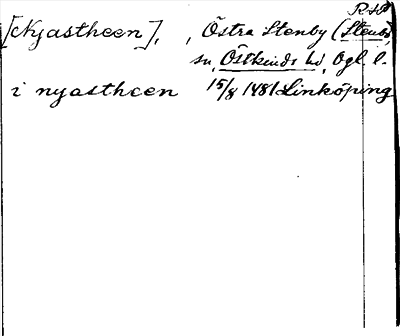 [Nyastheen], , Östra Stenby (Stenby,
sn, Östkinds hd, Ögl. l.
i nyastheen 15/8 1481 Linköping